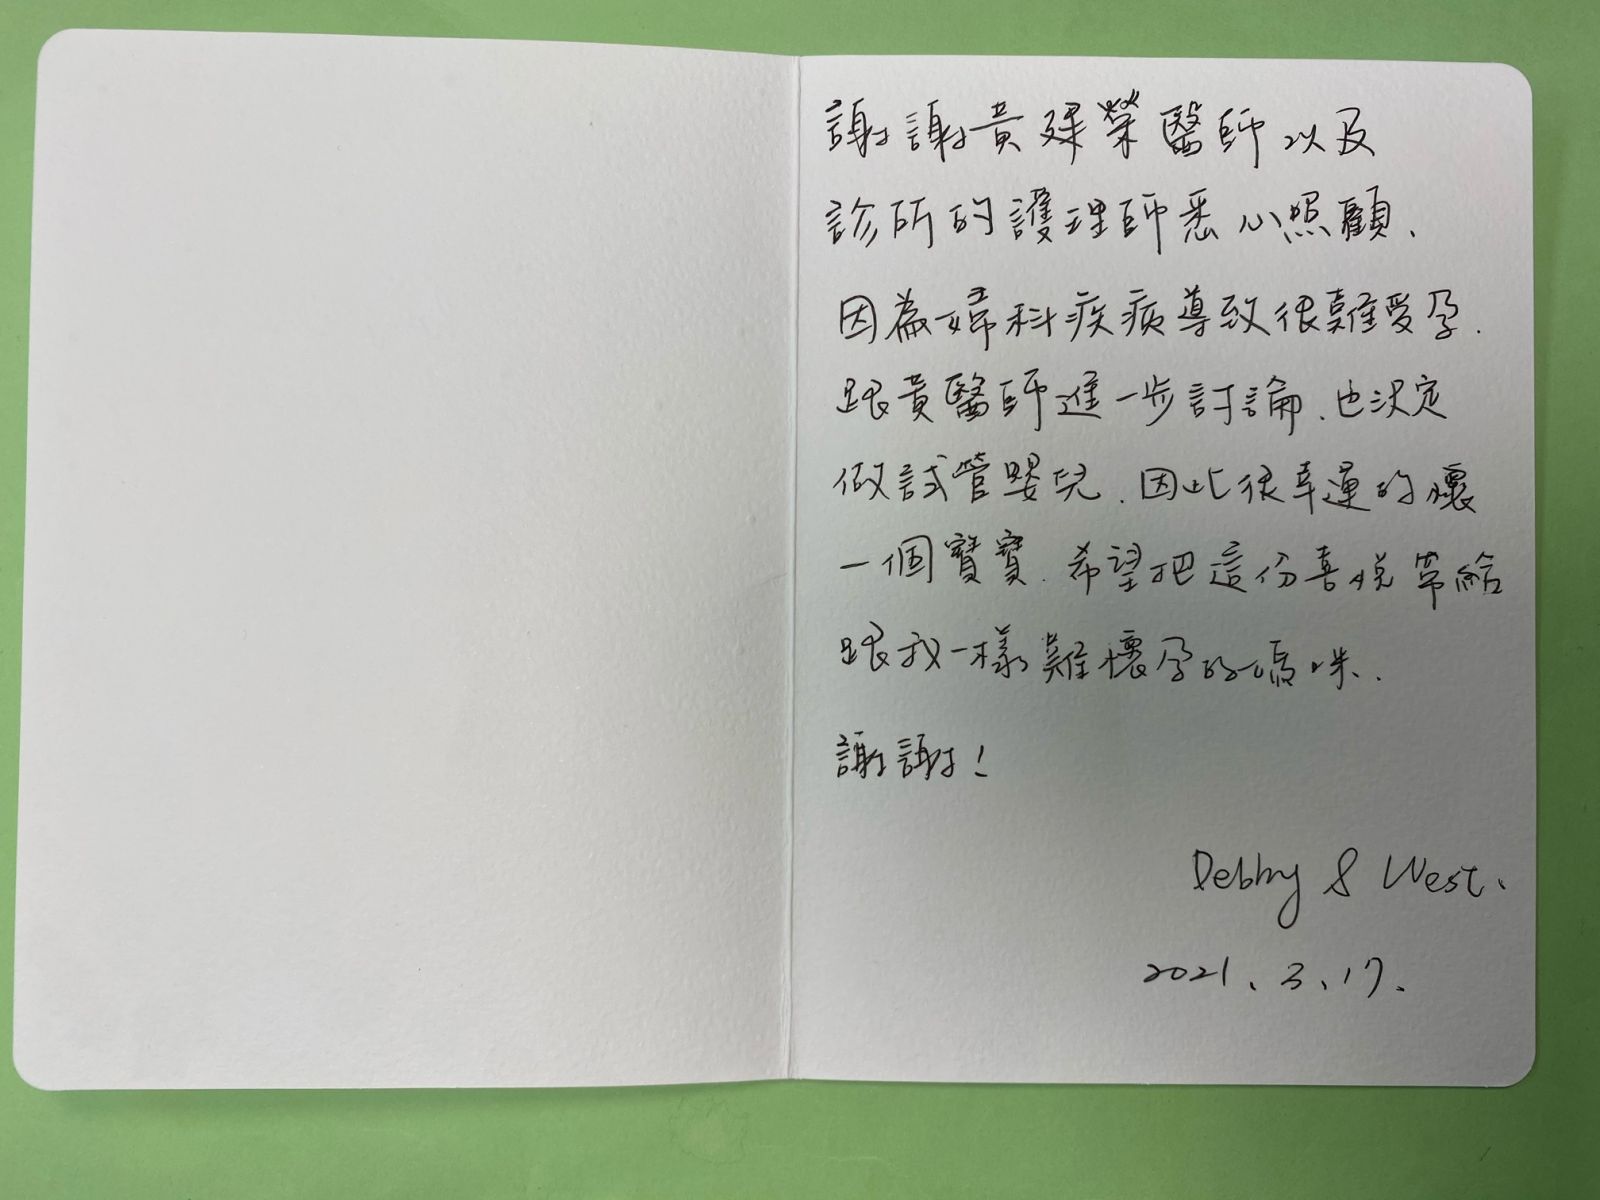 謝謝黃建榮醫師以及
診所的護理師悉心照顧、
因為婦科疾病導致很難受孕.
跟黃醫師進一步討論、也決定
做試管嬰兒、因此很幸運的懷
一個寶寶.希望把這份喜悅帶給
跟我一樣難懷孕的媽咪.
謝謝!
Debby & West.
2021.3.17.